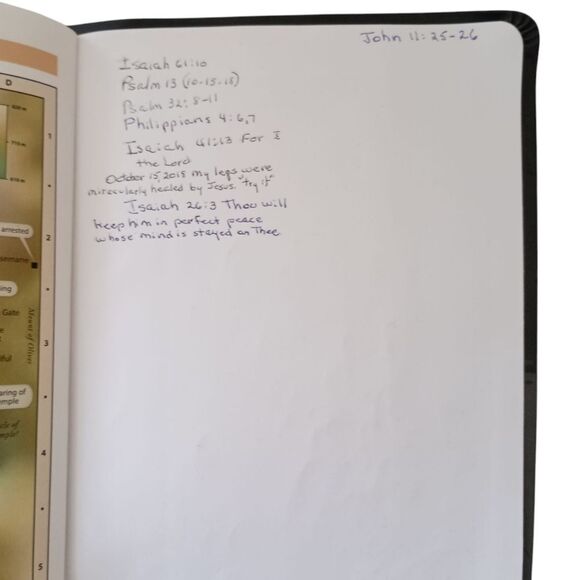 D
820 m
1
710 m
610 m
arrested
2
ing
Gate
Mount of Olives
3
aring of
emple
4
5
John 11:25-26
Isaiah 61:10
Psalm 13 (10-15-18)
Psalm 32:8-11
Philippians 4:6,7
Isaiah 41:13 For I
the Lord
October 15, 2018 my legs were
miracularly healed by Jesus. "Try it"
Isaiah 26:3 Thou will
keep him in perfect peace
whose mind is stayed on Thee.